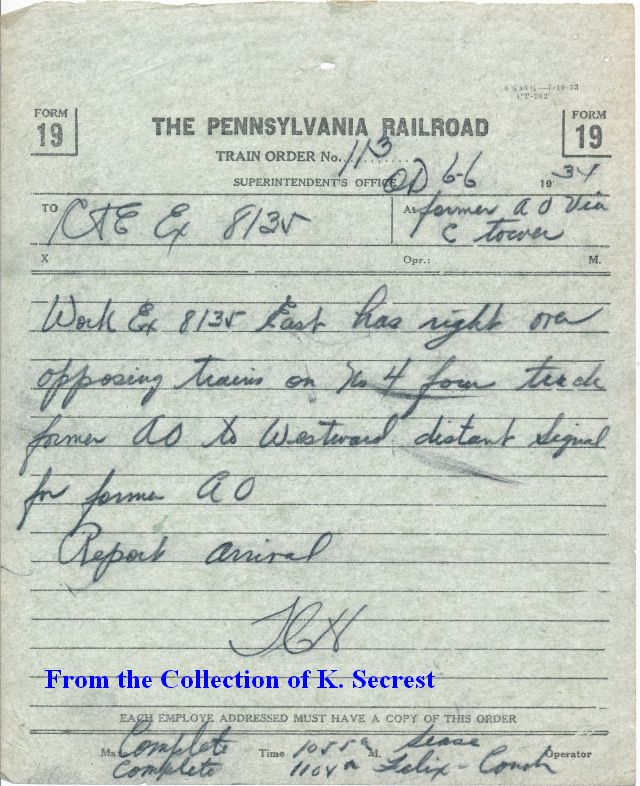 6¾x8¼—7-10-33
CT-262
FORM
19
THE PENNSYLVANIA RAILROAD
FORM
19
TRAIN ORDER No. 113
SUPERINTENDENT'S OFFICE 6-6 1934
TO C&E Ex 8135
At former AO Via
C tower
X Opr.: M.
Work Ex 8135 East has right over
opposing trains on No 4 four track
former AO to Westward distant Signal
for former AO
Report arrival
From the Collection of K. Secrest
EACH EMPLOYE ADDRESSED MUST HAVE A COPY OF THIS ORDER
Made Complete Time 1055a M. Sease Operator
Complete 1104a Felix-Couch